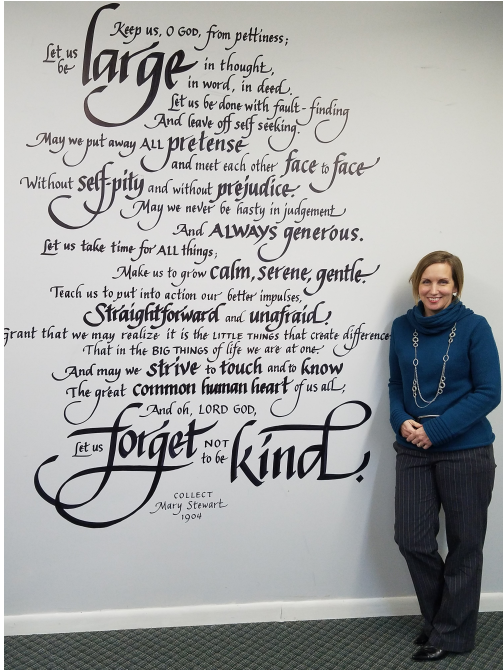 Keep us, O GOD, from pettiness;
Let us be large in thought,
in word, in deed.
Let us be done with fault-finding
And leave off self seeking.
May we put away ALL pretense
and meet each other face to face
Without self-pity and without prejudice.
May we never be hasty in judgement
And ALWAYS generous.
Let us take time for ALL things;
Make us to grow calm, serene, gentle.
Teach us to put into action our better impulses,
Straightforward and unafraid.
Grant that we may realize it is the LITTLE THINGS that create differences
That in the BIG THINGS of life we are at one.
And may we strive to touch and to know
The great common human heart of us all;
And oh, LORD GOD,
Let us forget NOT to be kind.
COLLECT
Mary Stewart
1904